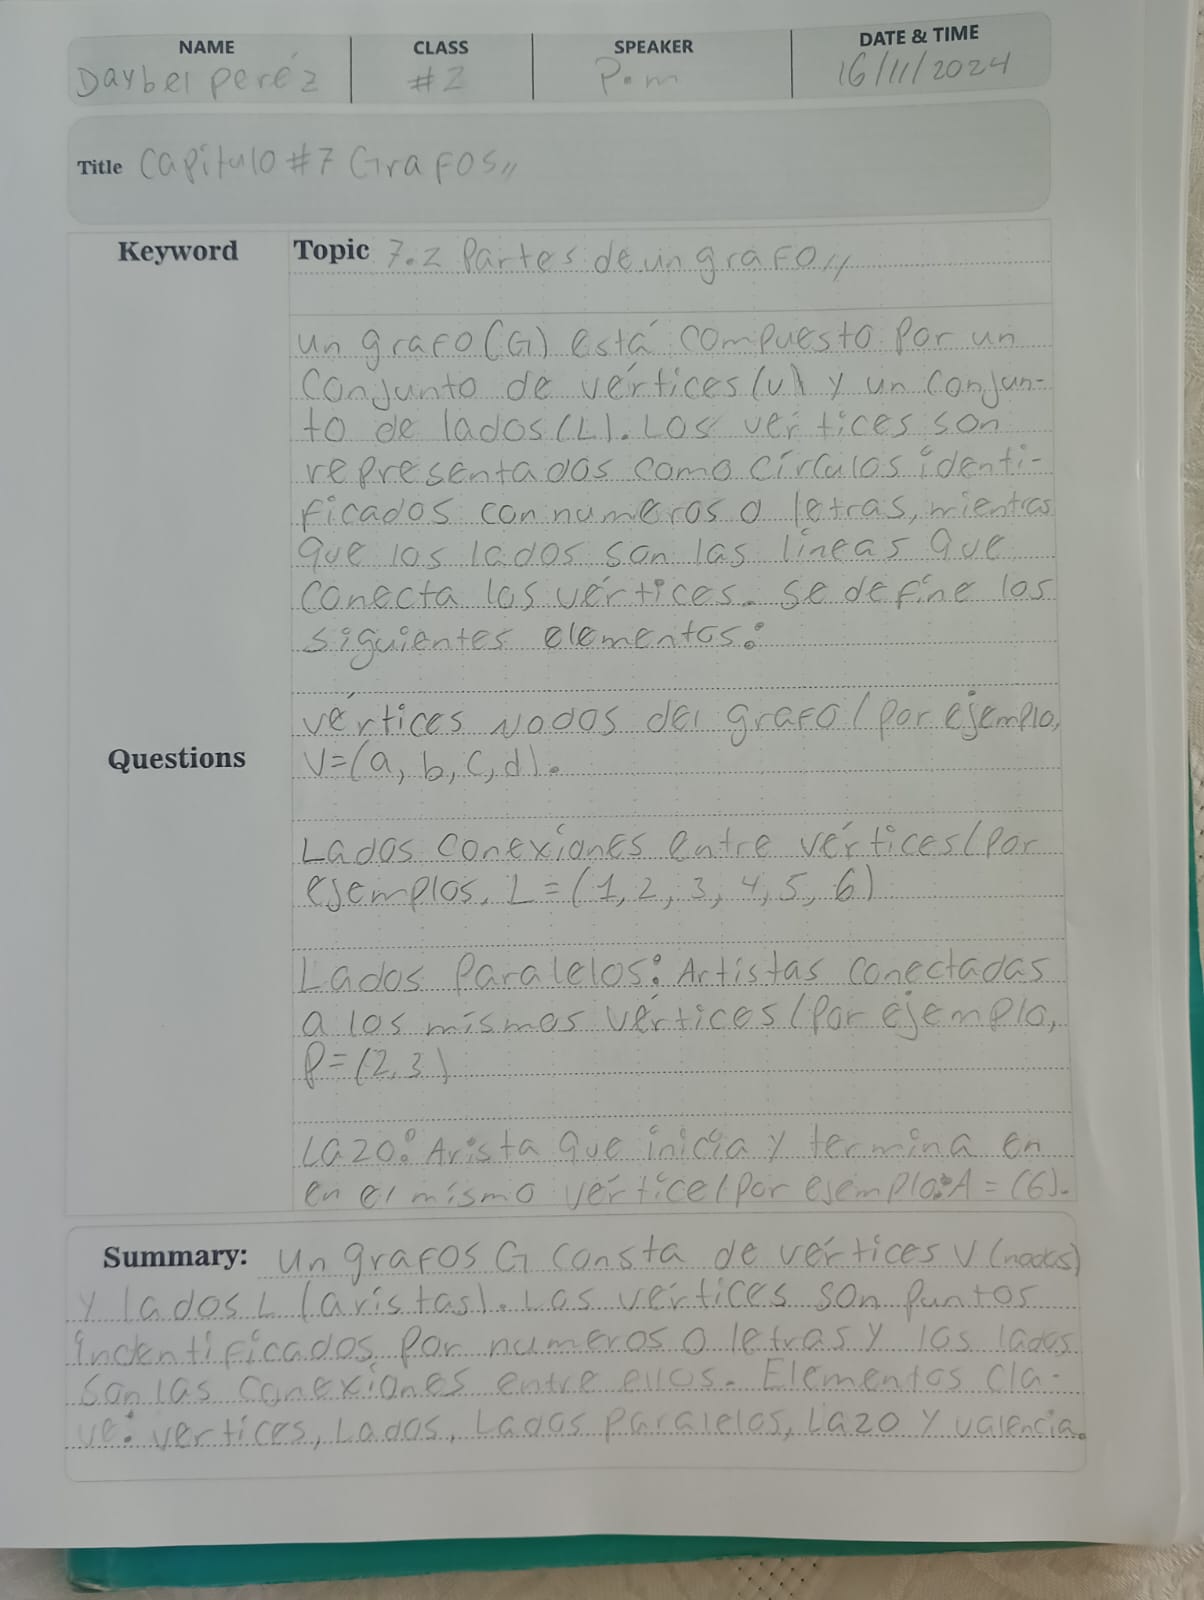 NAME CLASS SPEAKER DATE & TIME
Daybel peréz #2 P.m 16/11/2024
Title Capítulo #7 Grafos,,
Keyword Topic 7.2 Partes de un grafo,,
un grafo (G) está compuesto por un
conjunto de vértices (v) y un conjun-
to de lados (L). Los vértices son
representados como círculos identi-
ficados con numeros o letras, mientras
que los lados son las líneas que
conecta los vértices. se define los
siguientes elementos:
vértices nodos del grafo (por ejemplo,
Questions V=(a, b, c, d).
Lados conexiones entre vértices (por
ejemplos, L = (1, 2, 3, 4, 5, 6)
Lados Paralelos: Artistas conectadas
a los mismos vértices (por ejemplo,
P=(2,3)
Lazo: Arista que inicia y termina en
en el mismo vértice (por ejemplo: A = (6).
Summary: un grafos G consta de vértices V (nodos)
y lados L (aristas). Los vértices son puntos
indentificados por numeros o letras y los lados
son las conexiones entre ellos. Elementos cla-
ve: vertices, Lados, Lados paralelos, Lazo y valencia.